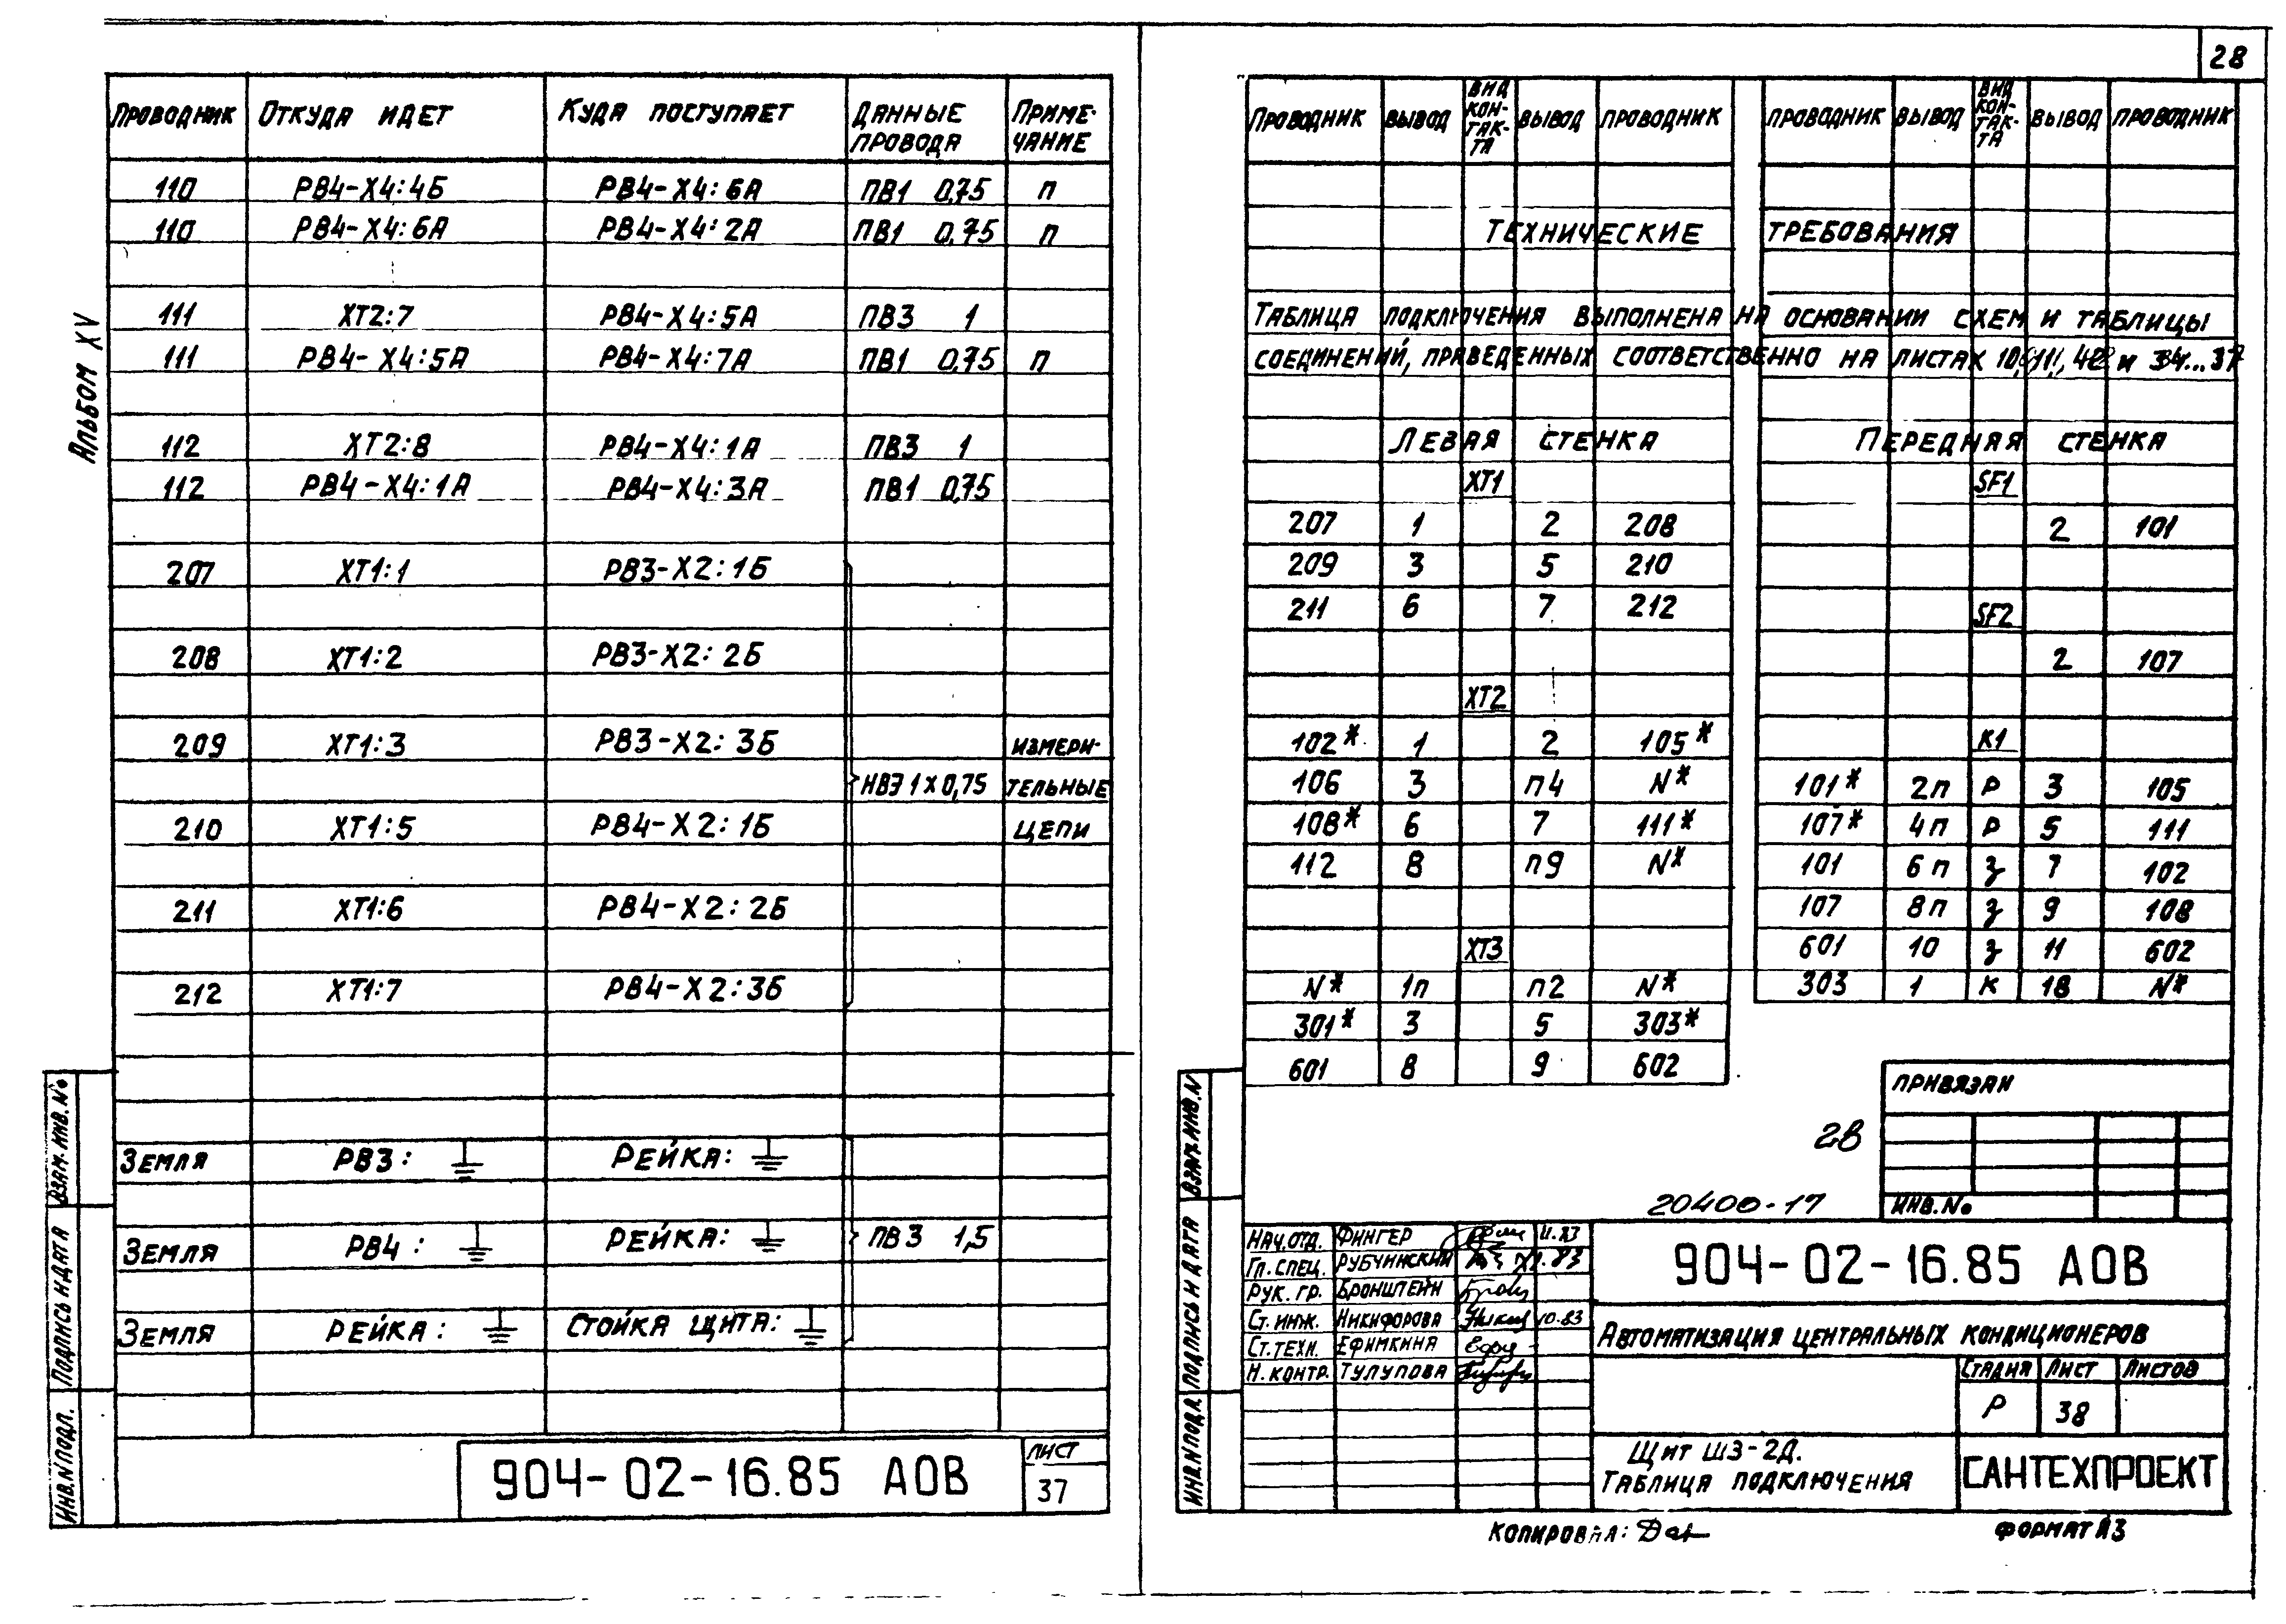 28
Альбом XV
Проводник Откуда идет Куда поступает Данные провода Примечание
110 РВ4-Х4:4Б РВ4-Х4:6А ПВ1 0,75 п
110 РВ4-Х4:6А РВ4-Х4:2А ПВ1 0,75 п
111 ХТ2:7 РВ4-Х4:5А ПВ3 1
111 РВ4-Х4:5А РВ4-Х4:7А ПВ1 0,75 п
112 ХТ2:8 РВ4-Х4:1А ПВ3 1
112 РВ4-Х4:1А РВ4-Х4:3А ПВ1 0,75
207 ХТ1:1 РВ3-Х2:1Б
208 ХТ1:2 РВ3-Х2:2Б
209 ХТ1:3 РВ3-Х2:3Б измери-
НВЭ 1х0,75 тельные
210 ХТ1:5 РВ4-Х2:1Б цепи
211 ХТ1:6 РВ4-Х2:2Б
212 ХТ1:7 РВ4-Х2:3Б
Земля РВ3: Рейка:
Земля РВ4: Рейка: ПВ3 1,5
Земля Рейка: Стойка щита:
904-02-16.85 АОВ
Лист
37
Взам. инв. №
Подпись и дата
Инв. № подл.
Проводник Вывод Вид контакта Вывод Проводник Проводник Вывод Вид контакта Вывод Проводник
Технические требования
Таблица подключения выполнена на основании схем и таблицы
соединений, праведенных соответственно на листах
Левая стенка Передняя стенка
ХТ1 SF1
207 1 2 208 2 101
209 3 5 210
211 6 7 212 SF2
2 107
ХТ2
102* 1 2 105* К1
106 3 п4 N* 101* 2п Р 3 105
108* 6 7 111* 107* 4п Р 5 111
112 8 п9 N* 101 6п З 7 102
107 8п З 9 108
ХТ3 601 10 З 11 602
N* 1п п2 N* 303 1 К 18 N*
301* 3 5 303*
601 8 9 602
Привязан
28
20400-17
Инв. №
Взам. инв. №
Подпись и дата
Инв. № подл.
Нач. отд. Фингер
Гл. спец. Рубчинский XI.83
Рук. гр. Бронштейн
Ст. инж. Никифорова 10.83
Ст. техн. Ефимкина
Н. контр. Тулупова
904-02-16.85 АОВ
Автоматизация центральных кондиционеров
Стадия Лист Листов
Р 38
Щит Ш3-2Д.
Таблица подключения
САНТЕХПРОЕКТ
Копировал:
Формат А3